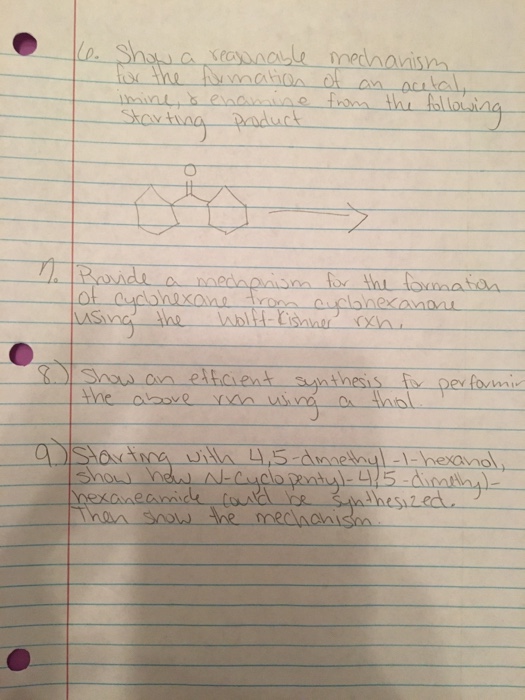 6. Show a reasonable mechanism
for the formation of an acetal,
imine, & enamine from the following
starting product
O
7. Provide a mechanism for the formation
of cyclohexane from cyclohexanone
using the Wolff-Kishner rxn.
8.) Show an efficient synthesis for performin
the above rxn using a thiol.
9.) Starting with 4,5-dimethyl-1-hexanol,
show how N-cyclopentyl-4,5-dimethyl-
hexaneamide could be synthesized.
Then show the mechanism.